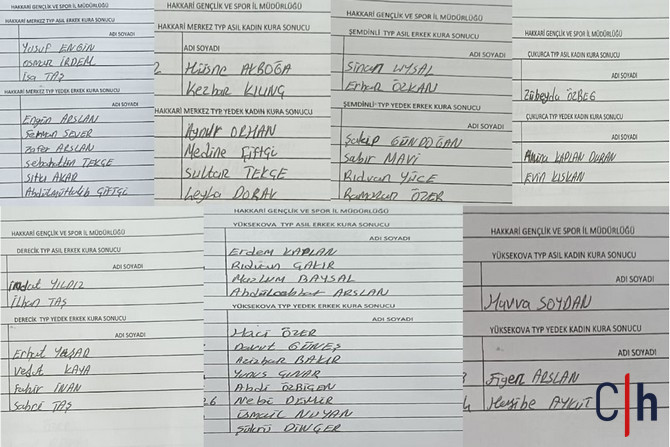 HAKKARİ GENÇLİK VE SPOR İL MÜDÜRLÜĞÜ
HAKKARİ MERKEZ TYP ASIL ERKEK KURA SONUCU
ADI SOYADI
Yusuf ENGİN
İRDEM
İsa TAŞ
HAKKARİ MERKEZ TYP YEDEK ERKEK KURA SONUCU
ADI SOYADI
Engin ARSLAN
SEVER
Zafer ARSLAN
Sebahattin TEKÇE
Sıtkı AKAR
Abdulmuttalib ÇİFTÇİ
HAKKARİ GENÇLİK VE SPOR İL MÜDÜRLÜĞÜ
HAKKARİ MERKEZ TYP ASIL KADIN KURA SONUCU
ADI SOYADI
2 Hüsne AKBOĞA
Kezban KILINÇ
HAKKARİ MERKEZ TYP YEDEK KADIN KURA SONUCU
ADI SOYADI
Aynur ORHAN
Medine ÇİFTÇİ
Sultan TEKÇE
Leyla DORAK
HAKKARİ GENÇLİK VE SPOR İL MÜDÜRLÜĞÜ
ŞEMDİNLİ TYP ASIL ERKEK KURA SONUCU
ADI SOYADI
Sinan UYSAL
Erhan ÖZKAN
ŞEMDİNLİ TYP YEDEK ERKEK KURA SONUCU
ADI SOYADI
Şakip GÜNDOĞAN
Sabir MAVİ
Rıdvan YÜCE
Ramazan ÖZER
HAKKARİ GENÇLİK VE SPOR İL MÜDÜRLÜĞÜ
ÇUKURCA TYP ASIL KADIN KURA SONUCU
ADI SOYADI
Zübeyda ÖZBEG
ÇUKURCA TYP YEDEK KADIN KURA SONUCU
ADI SOYADI
KAPLAN DURAN
Evin KISKAN
HAKKARİ GENÇLİK VE SPOR İL MÜDÜRLÜĞÜ
DERECİK TYP ASIL ERKEK KURA SONUCU
ADI SOYADI
YILDIZ
İlhan TAŞ
DERECİK TYP YEDEK ERKEK KURA SONUCU
ADI SOYADI
Erhat
Vedat KAYA
Fahir İNAN
Sabri TAŞ
HAKKARİ GENÇLİK VE SPOR İL MÜDÜRLÜĞÜ
YÜKSEKOVA TYP ASIL ERKEK KURA SONUCU
ADI SOYADI
Erdem KAPLAN
Rıdvan ÇAKIR
Mazlum BAYSAL
ARSLAN
YÜKSEKOVA TYP YEDEK ERKEK KURA SONUCU
ADI SOYADI
Hacı ÖZER
Davut GÜNEŞ
Azizhan BAKIR
Yunus ÇINAR
Abdi ÖZBİGEN
26 Nebi DEMİR
İsmail NUYAN
Şükrü DİNÇER
HAKKARİ GENÇLİK VE SPOR İL MÜDÜRLÜĞÜ
YÜKSEKOVA TYP ASIL KADIN KURA SONUCU
ADI SOYADI
Havva SOYDAN
YÜKSEKOVA TYP YEDEK KADIN KURA SONUCU
ADI SOYADI
Figen ARSLAN
AYKUT
C|h